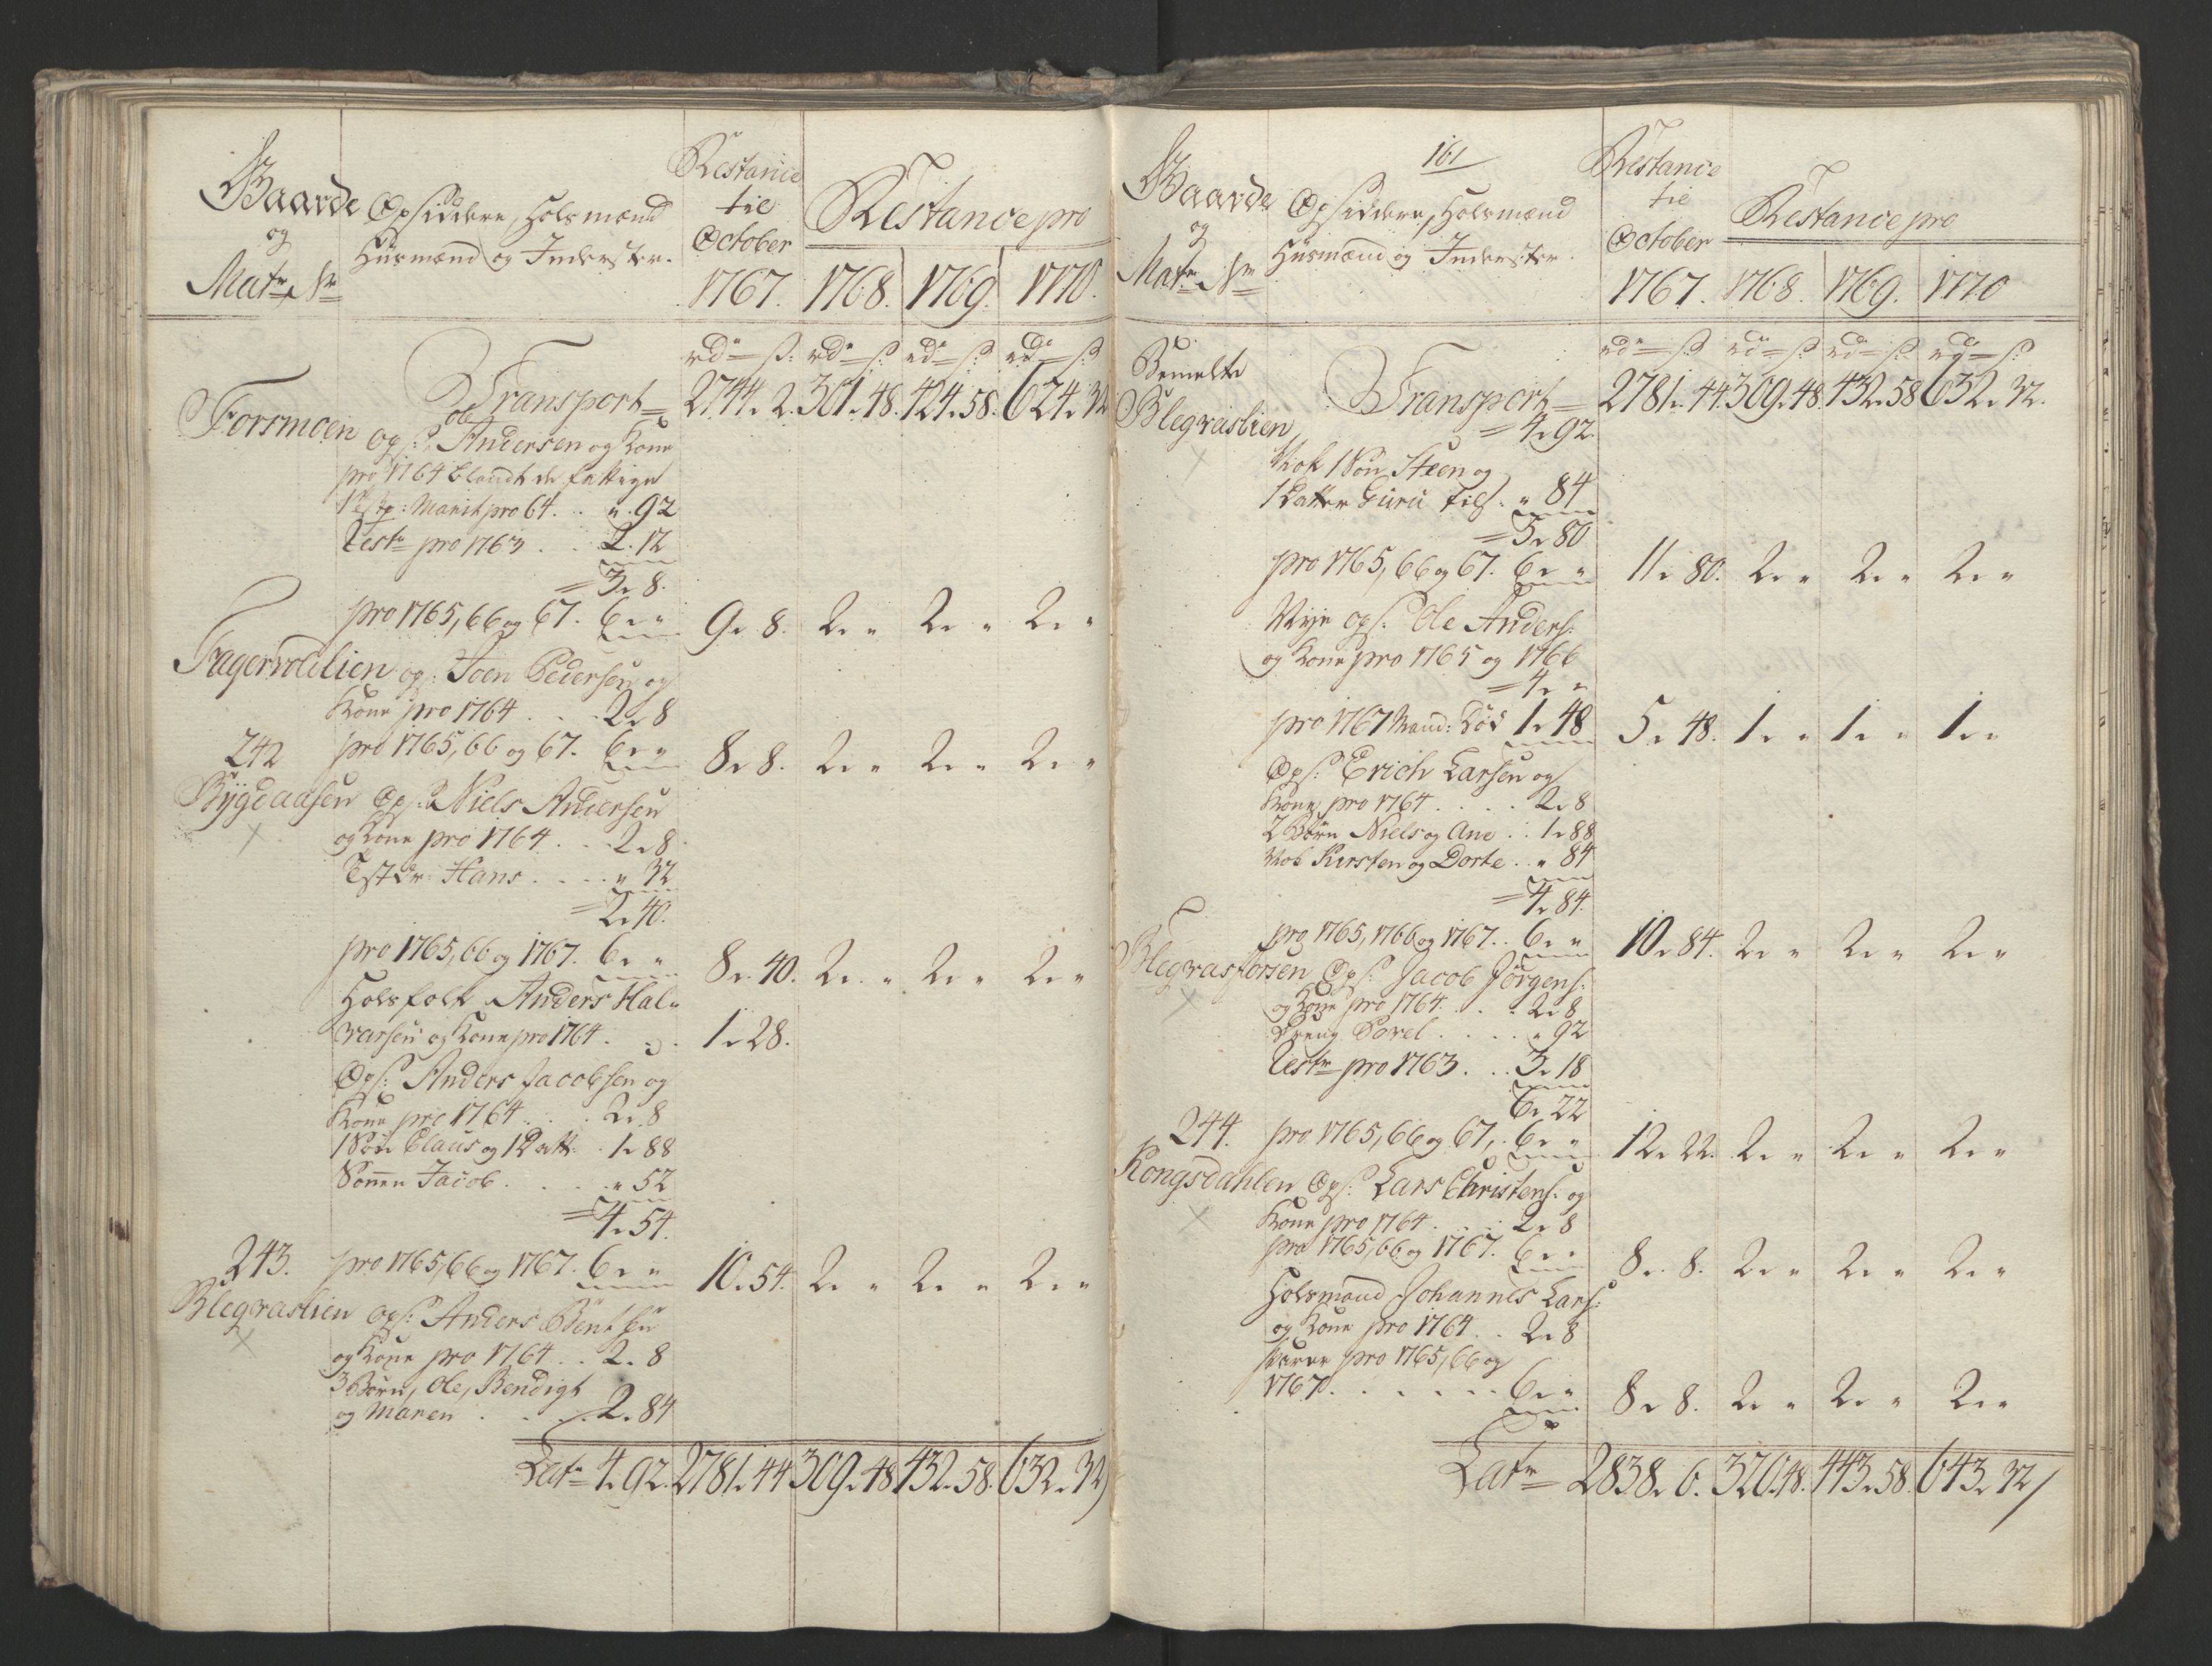 Gaarde
og
Matr. Nr
Opsiddere, Holsmænd
Huusmænd og Inderster.
Restance
til
October
1767.
Restance pro
1768. 1769. 1770.
rdr ß: rdr ß: rdr ß: rdr ß:
Transport 2744. 2. 301. 48. 424. 58. 624. 32
Forsmoen ops: Ole Andersen og Kone
pro 1764 blandt de fattige
Marit pro 64. . " 92
Rest. pro 1763 . . 2. 12
= 3. 8.
pro 1765, 66 og 67. 6. " 9. 8. 2. " 2. " 2. "
Fagervoldlien ops: Joen Pedersen og
Kone pro 1764 . . . 2. 8
242 pro 1765, 66 og 67. 6. " 8. 8. 2. " 2. " 2. "
Bygdaasen Ops: Niels Andersen
og Kone pro 1764 . . . 2. 8.
Hans . . . . " 32
= 2. 40.
pro 1765, 66 og 1767. 6. " 8. 40. 2. " 2. " 2. "
Holsfolk Anders Hal-
varsen og Kone pro 1764 . . . 1. 28.
Ops: Anders Jacobsen og
Kone pro 1764 . . . 2. 8
1 Søn Claus og 1 Datt: . 1. 88
Sønnen Jacob . . . . " 52
= 4. 54.
243. pro 1765, 66 og 1767. 6. " 10. 54. 2. " 2. " 2. "
Blegraslien ops: Anders Bentsen
og Kone pro 1764 . . 2. 8
3 Børn, Ole, Bendigt
og Maren . . . . 2. 84
Latr 4. 92. 2781. 44 309. 48 432. 58. 632. 32
161
Gaarde
og
Matr. Nr
Opsiddere, Holsmænd
Huusmænd og Inderster.
Restance
til
October
1767.
Restance pro
1768. 1769. 1770
rdr ß: rdr ß: rdr ß: rdr ß:
Bemelte
Blegraslien Transport 2781. 44. 309. 48. 432. 58 632. 32.
= 4. 92.
1 Søn Steen og
1 Datter Guru til " 84
= 5. 80
pro 1765, 66 og 67. 6. " 11. 80. 2. " 2. " 2. "
Nye ops: Ole Anders:
og Kone pro 1765 og 1766
= 4. "
pro 1767 Mand: død 1. 48 5. 48. 1. " 1. " 1. "
Ops: Erich Larsen og
Kone pro 1764 . . . . 2. 8
2 Børn Niels og Ane . . 1. 88
Kirsten og Dorte . . " 84
= 4. 84.
pro 1765, 1766 og 1767. . 6. " 10. 84. 2. " 2. " 2. "
Blegrasforsen Ops: Jacob Jørgens:
og Kone pro 1764. . . . 2. 8
Dreng Povel . . . . " 92
Rest. pro 1763. . . 3. 18
6. 22
244. pro 1765, 66 og 67, . 6. " 12. 22. 2. " 2. " 2. "
Kongsdahlen Ops: Lars Christens: og
Kone pro 1764 . . . . 2. 8
pro 1765, 66 og 1767. 6. " 8. 8. 2. " 2. " 2. "
Holsmand Johannes Lars:
og Kone pro 1764 . . 2. 8
pro 1765, 66 og
1767. . . . . . . 6. " 8. 8. 2. " 2. " 2. "
Latr 2838. 6. 320. 48. 443. 58. 643. 32